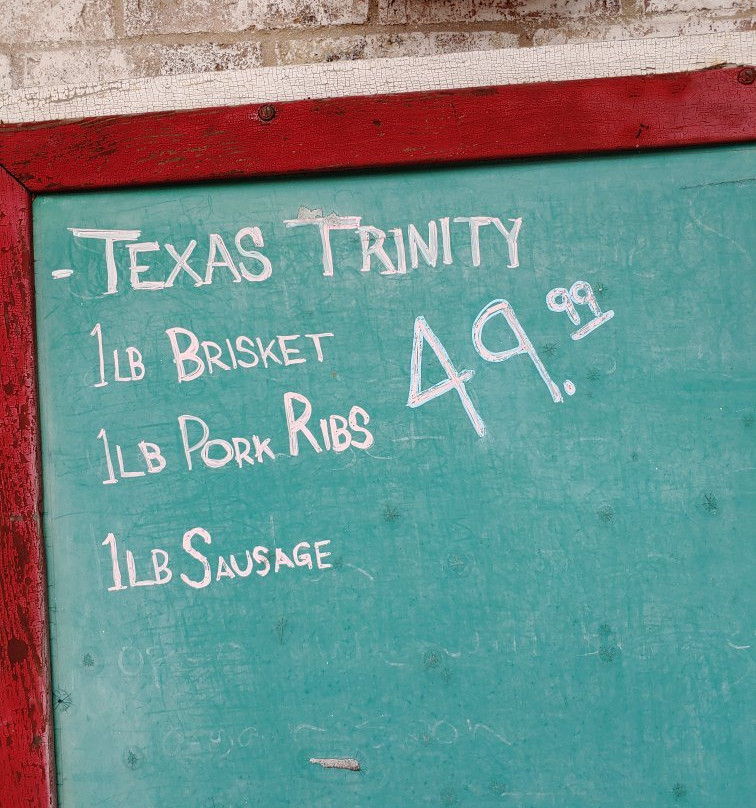 - TEXAS TRINITY
1LB BRISKET 49.99
1LB PORK RIBS
1LB SAUSAGE